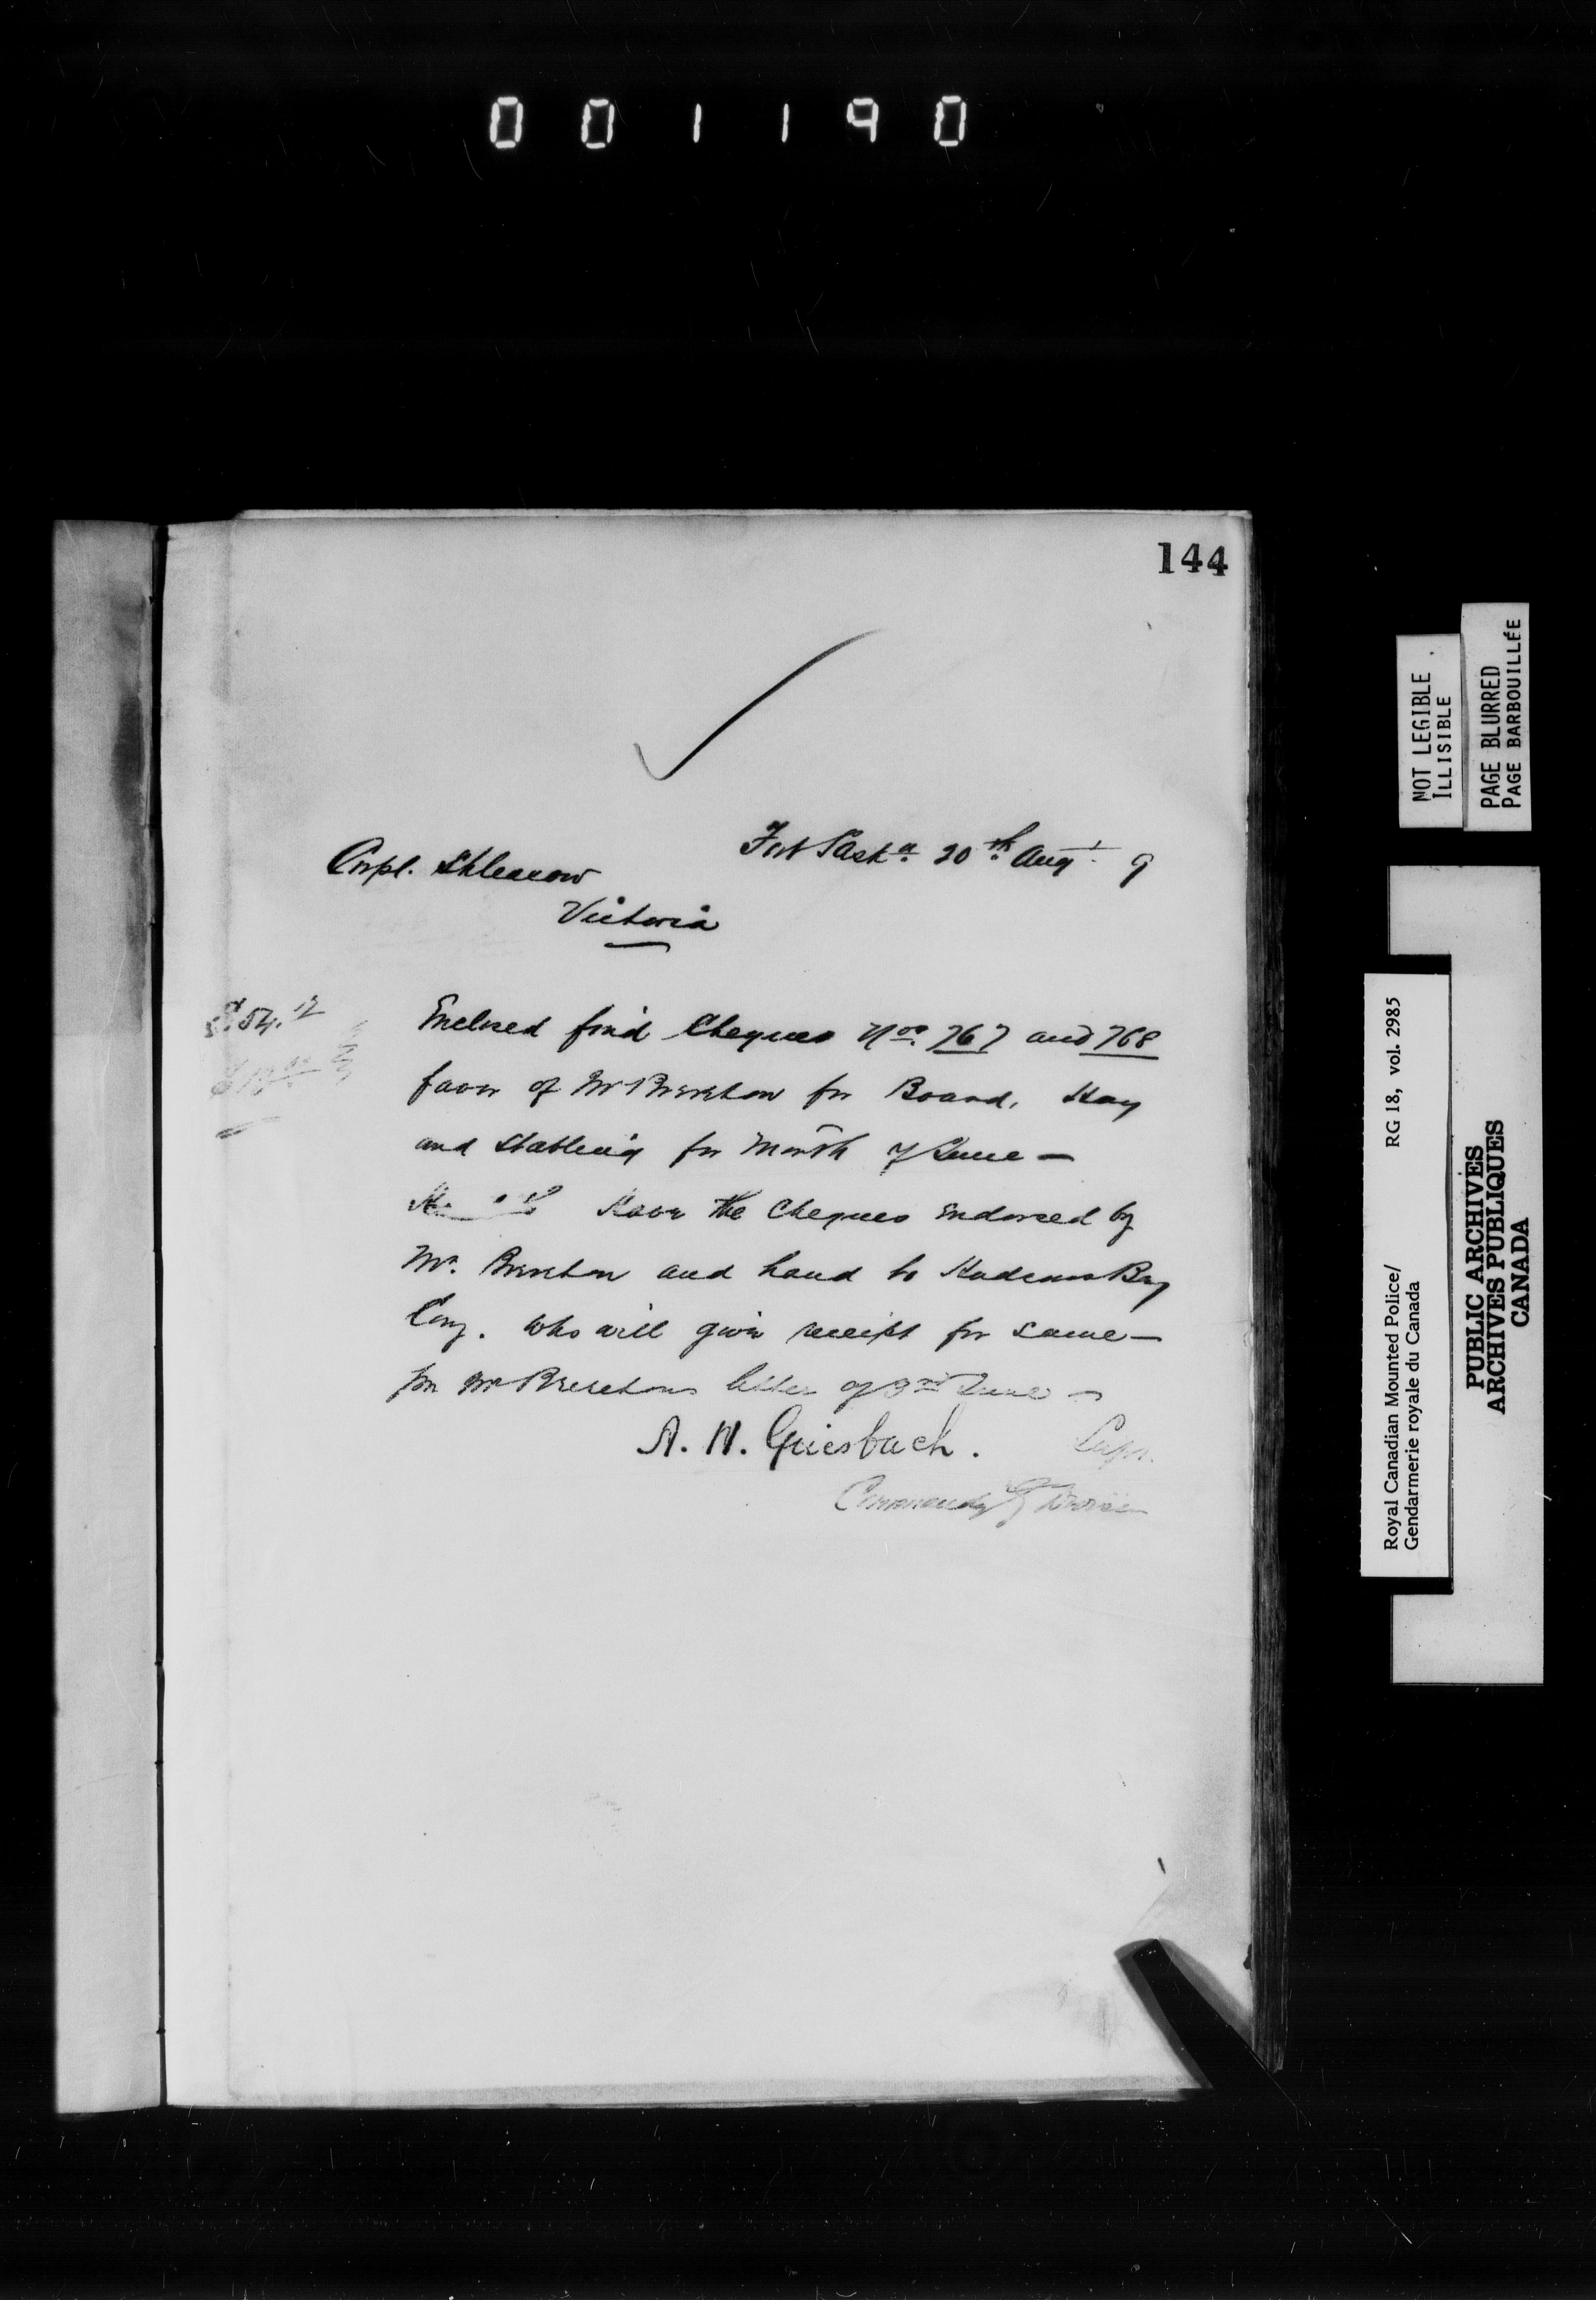 001190
144
Fort Sask<sup>a</sup>. 20<sup>th</sup>. Aug<sup>t</sup>. 9
Corpl.
Victoria
$54.12
Enclosed find Cheques Nos. 767 and 768
favor of Mr Brereton for Board, Hay
and Stabling for Month of June —
Have the Cheques endorsed by
Mr. Brereton and hand to Hudsons Bay
Coy. who will give receipt for same —
Mr Breretons letter of 3rd June —
A. H. Griesbach. Supt.
Commandg G Division
NOT LEGIBLE
ILLISIBLE
PAGE BLURRED
PAGE BARBOUILLÉE
Royal Canadian Mounted Police/ RG 18, vol. 2985
Gendarmerie royale du Canada
PUBLIC ARCHIVES
ARCHIVES PUBLIQUES
CANADA